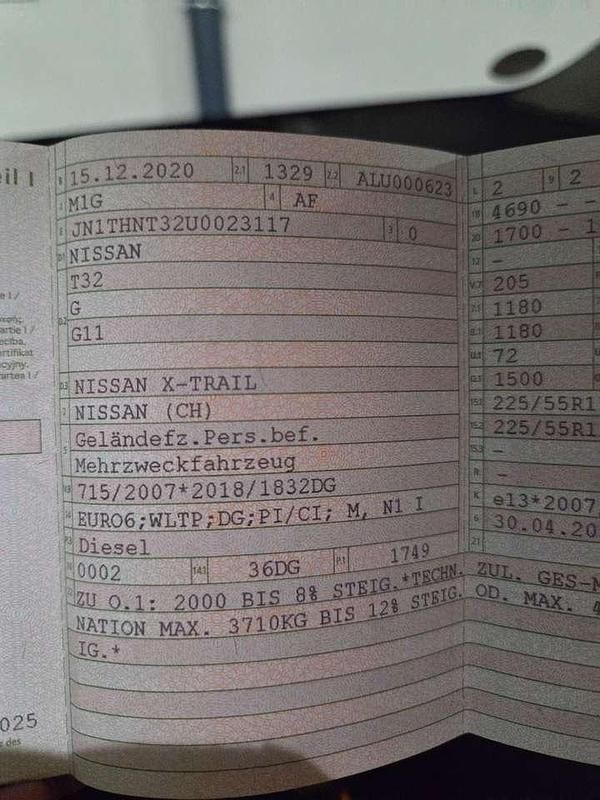 eil I
B 15.12.2020 2.1 1329 2.2 ALU000623
J M1G 4 AF
E JN1THNT32U0023117 3 0
D.1 NISSAN
T32
G
D.2 G11
D.3 NISSAN X-TRAIL
2 NISSAN (CH)
5 Geländefz.Pers.bef.
Mehrzweckfahrzeug
V.9 715/2007*2018/1832DG
14 EURO6;WLTP;DG;PI/CI; M, N1 I
P.3 Diesel
10 0002 14.1 36DG P.1 1749
ZU O.1: 2000 BIS 8% STEIG.*TECHN. ZUL. GES-M
NATION MAX. 3710KG BIS 12% STEIG. OD. MAX. 4
IG.*
L 2 9 2
18 4690 - -
20 1700 - 1
12 -
V.7 205
7.1 1180
8.1 1180
U.1 72
O.1 1500
15.1 225/55R1
15.2 225/55R1
15.3 -
R -
K e13*2007
6 30.04.20
21
e I /
artie I /
ertifikat
cyjny.
artea I /
025
e des